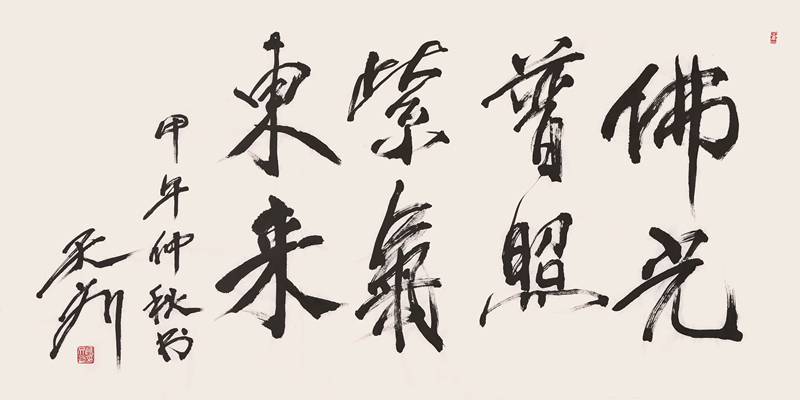 佛光
普照
紫氣
東来
甲午仲秋於